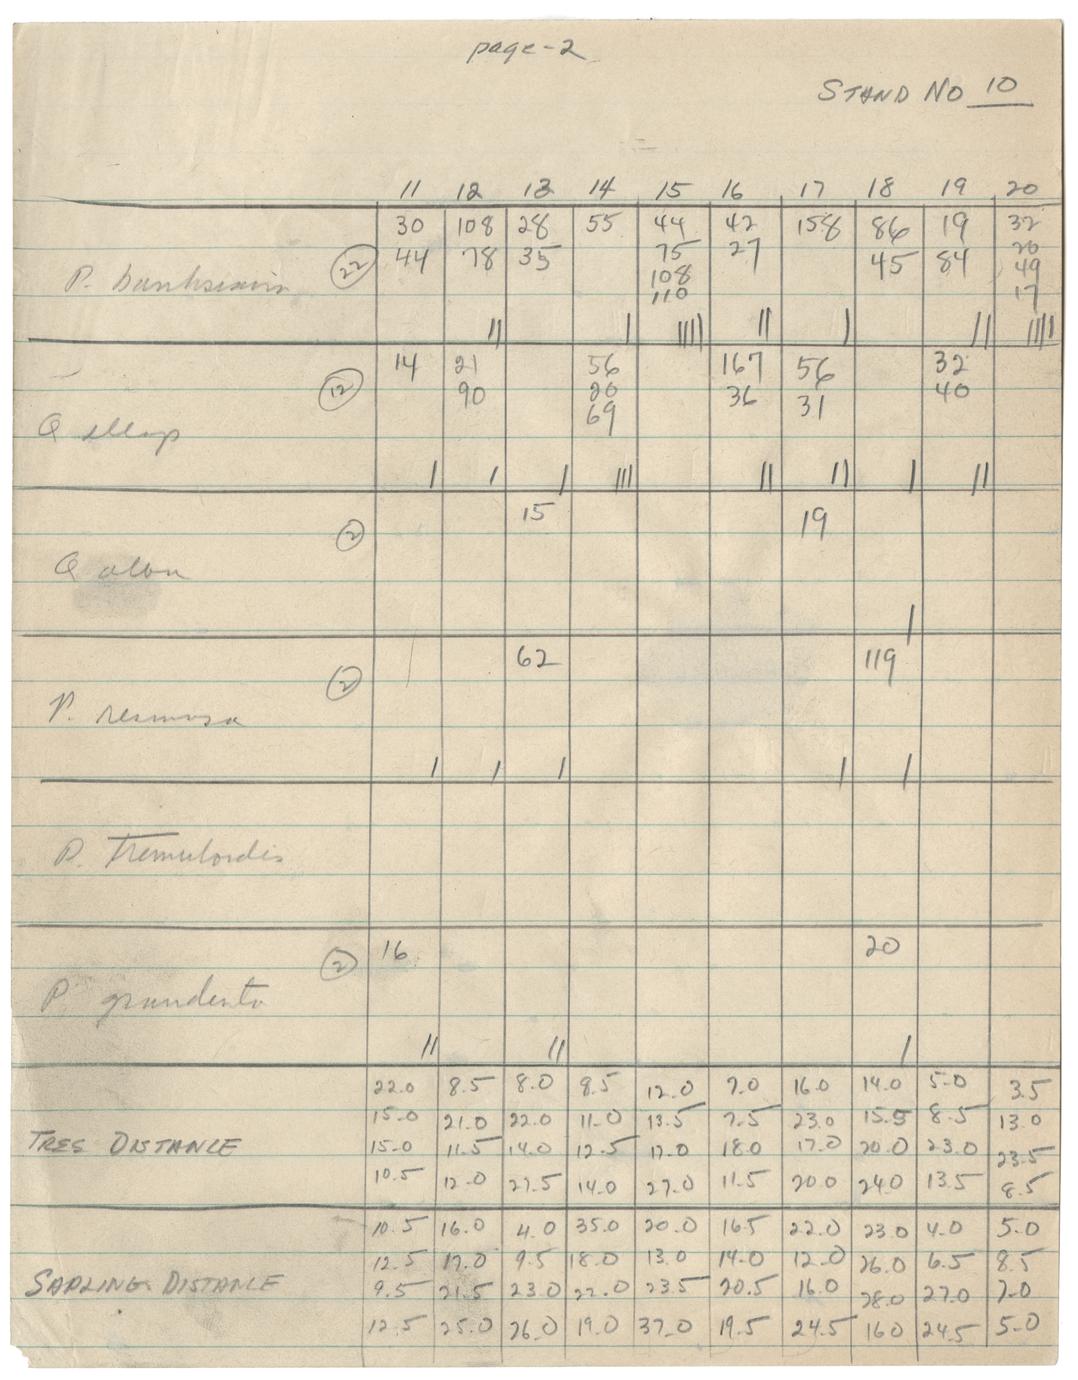 page-2
STAND NO 10
11 12 13 14 15 16 17 18 19 20
30 108 28 55 44 42 158 86 19 32
P. banksiana 22 44 78 35 75 27 45 84 20
108 49
110 17
|| | |||| || | || ||||
14 21 56 167 56 32
12 90 20 36 31 40
Q ellip 69
| | | |||| || || | ||
15 19
2
Q alba
|
62 119
2
P. resinosa
| | | | |
P. Tremuloides
16 20
2
P. grandenta
|| || |
22.0 8.5 8.0 9.5 12.0 7.0 16.0 14.0 5.0 3.5
15.0 21.0 22.0 11.0 13.5 7.5 23.0 15.5 8.5 13.0
TREE DISTANCE 15.0 11.5 14.0 12.5 17.0 18.0 17.0 20.0 23.0 23.5
10.5 12.0 27.5 14.0 27.0 11.5 20.0 24.0 13.5 8.5
10.5 16.0 4.0 35.0 20.0 16.5 22.0 23.0 4.0 5.0
12.5 17.0 9.5 18.0 13.0 14.0 12.0 26.0 6.5 8.5
SAPLING DISTANCE 9.5 21.5 23.0 22.0 23.5 20.5 16.0 28.0 27.0 7.0
12.5 25.0 26.0 19.0 37.0 19.5 24.5 16.0 24.5 5.0